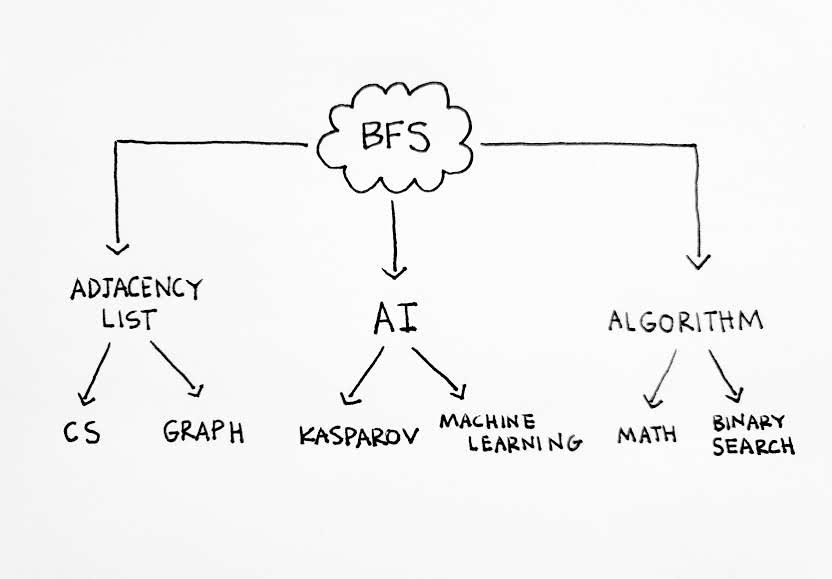 BFS
ADJACENCY
LIST
AI
ALGORITHM
CS
GRAPH
KASPAROV
MACHINE
LEARNING
MATH
BINARY
SEARCH